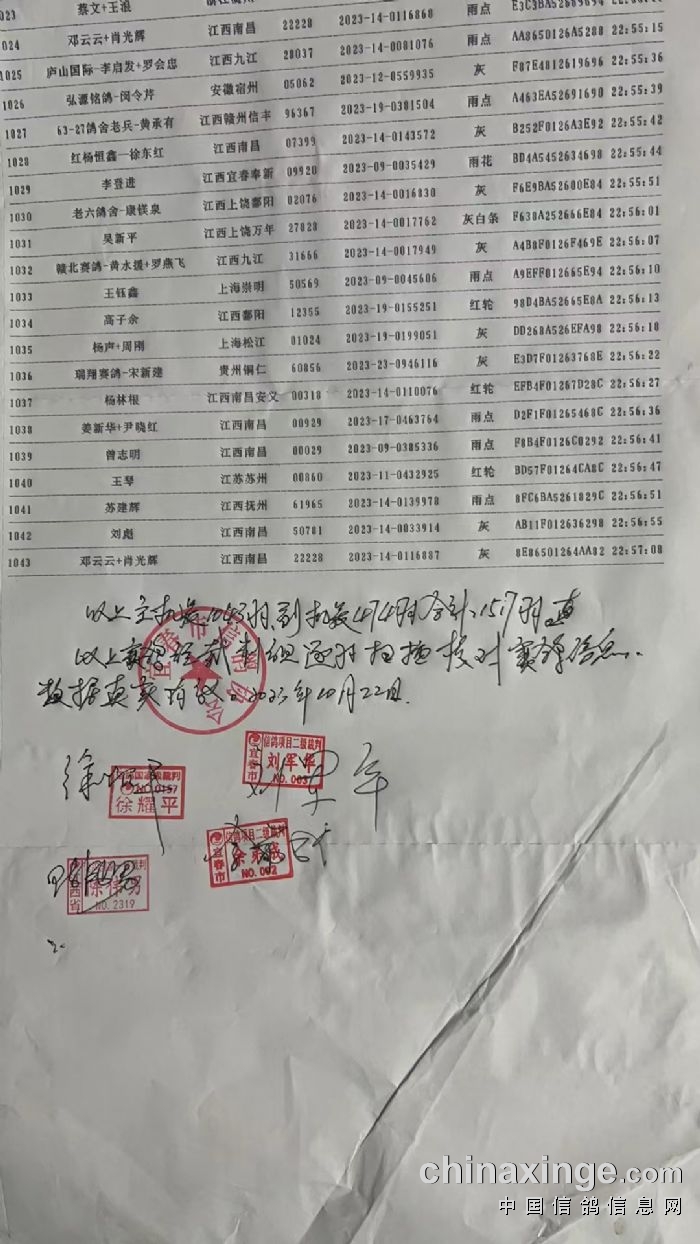 1023 蔡文+王浪 22228 2023-14-0116868 雨点
1024 邓云云+肖光辉 江西南昌 28037 2023-14-0081076 雨点 AA8650126A5288 22:55:15
1025 庐山国际-李启发+罗会忠 江西九江 05062 2023-12-0559935 灰 F87E4812619696 22:55:36
1026 弘源铭鸽-闵令芹 安徽宿州 96367 2023-19-0381504 雨点 A463EA52691690 22:55:39
1027 63-27鸽舍老兵-黄承有 江西赣州信丰 07399 2023-14-0143572 灰 B252F0126A3E92 22:55:42
1028 红杨恒鑫—徐东红 江西南昌 09920 2023-09-0035429 雨花 BD4A5452634698 22:55:44
1029 李登进 江西宜春奉新 02076 2023-14-0016830 灰 F6E9BA52600E84 22:55:51
1030 老六鸽舍-康镁泉 江西上饶鄱阳 27828 2023-14-0017762 灰白条 F638A252666E84 22:56:01
1031 吴新平 江西上饶万年 31666 2023-14-0017949 灰 A4B8F0126F469E 22:56:07
1032 赣北赛鸽-黄水援+罗燕飞 江西九江 50569 2023-09-0045606 雨点 A9EFF012665E94 22:56:10
1033 王钰鑫 上海崇明 12355 2023-19-0155251 红轮 98D4BA52665E8A 22:56:13
1034 高子余 江西鄱阳 01024 2023-19-0199051 灰 DD268A526EFA98 22:56:18
1035 杨声+周刚 上海松江 60856 2023-23-0946116 灰 E3D7F01263768E 22:56:22
1036 瑞翔赛鸽-宋新建 贵州铜仁 00318 2023-14-0110076 红轮 EFB4F01267D28C 22:56:27
1037 杨林根 江西南昌安义 00929 2023-17-0463764 雨点 D2F1F01265468C 22:56:36
1038 姜新华+尹晓红 江西南昌 00029 2023-09-0385336 雨点 F8B4F0126C0292 22:56:41
1039 曾志明 江西南昌 00860 2023-11-0432925 红轮 BD57F01264CA8C 22:56:47
1040 王琴 江苏苏州 61965 2023-14-0139978 雨点 8FC6BA5261829C 22:56:51
1041 苏建辉 江西抚州 50781 2023-14-0033914 灰 AB11F012636298 22:56:55
1042 刘彪 江西南昌 22228 2023-14-0116887 灰 8E86501264AA82 22:57:08
1043 邓云云+肖光辉 江西南昌
以上主扫描1043羽,副扫描474羽合计:1517羽,
以上赛鸽经裁判组逐羽扫描核对赛鸽信息.
数据真实有效.2023年10月22日.
徐耀平
信鸽项目二级裁判
宜春市
刘军华
信鸽项目二级裁判
宜春市
NO.002
NO.2319
chinaxinge.com
中国信鸽信息网